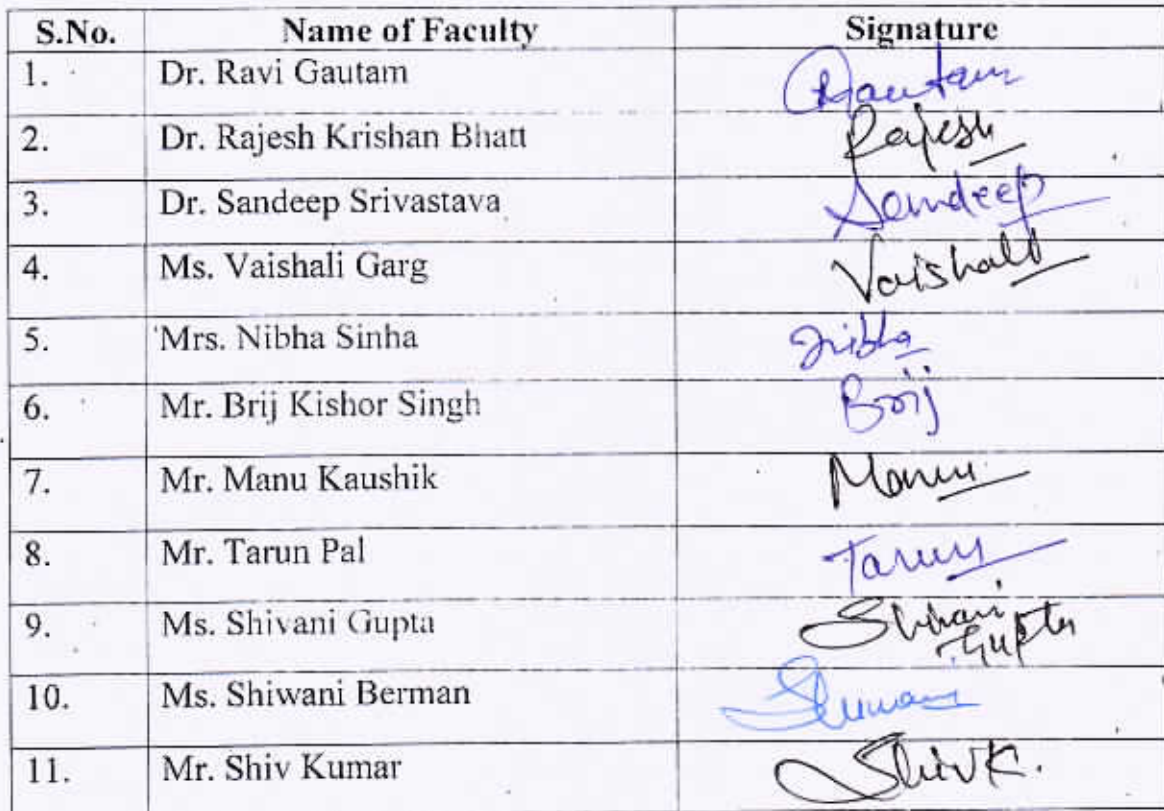 S.No. Name of Faculty Signature
1. Dr. Ravi Gautam Gautam
2. Dr. Rajesh Krishan Bhatt Rajesh
3. Dr. Sandeep Srivastava Sandeep
4. Ms. Vaishali Garg Vaishali
5. Mrs. Nibha Sinha Nibha
6. Mr. Brij Kishor Singh Brij
7. Mr. Manu Kaushik Manu
8. Mr. Tarun Pal Tarun
9. Ms. Shivani Gupta Shivani
Gupta
10. Ms. Shiwani Berman Shiwani
11. Mr. Shiv Kumar Shiv K.